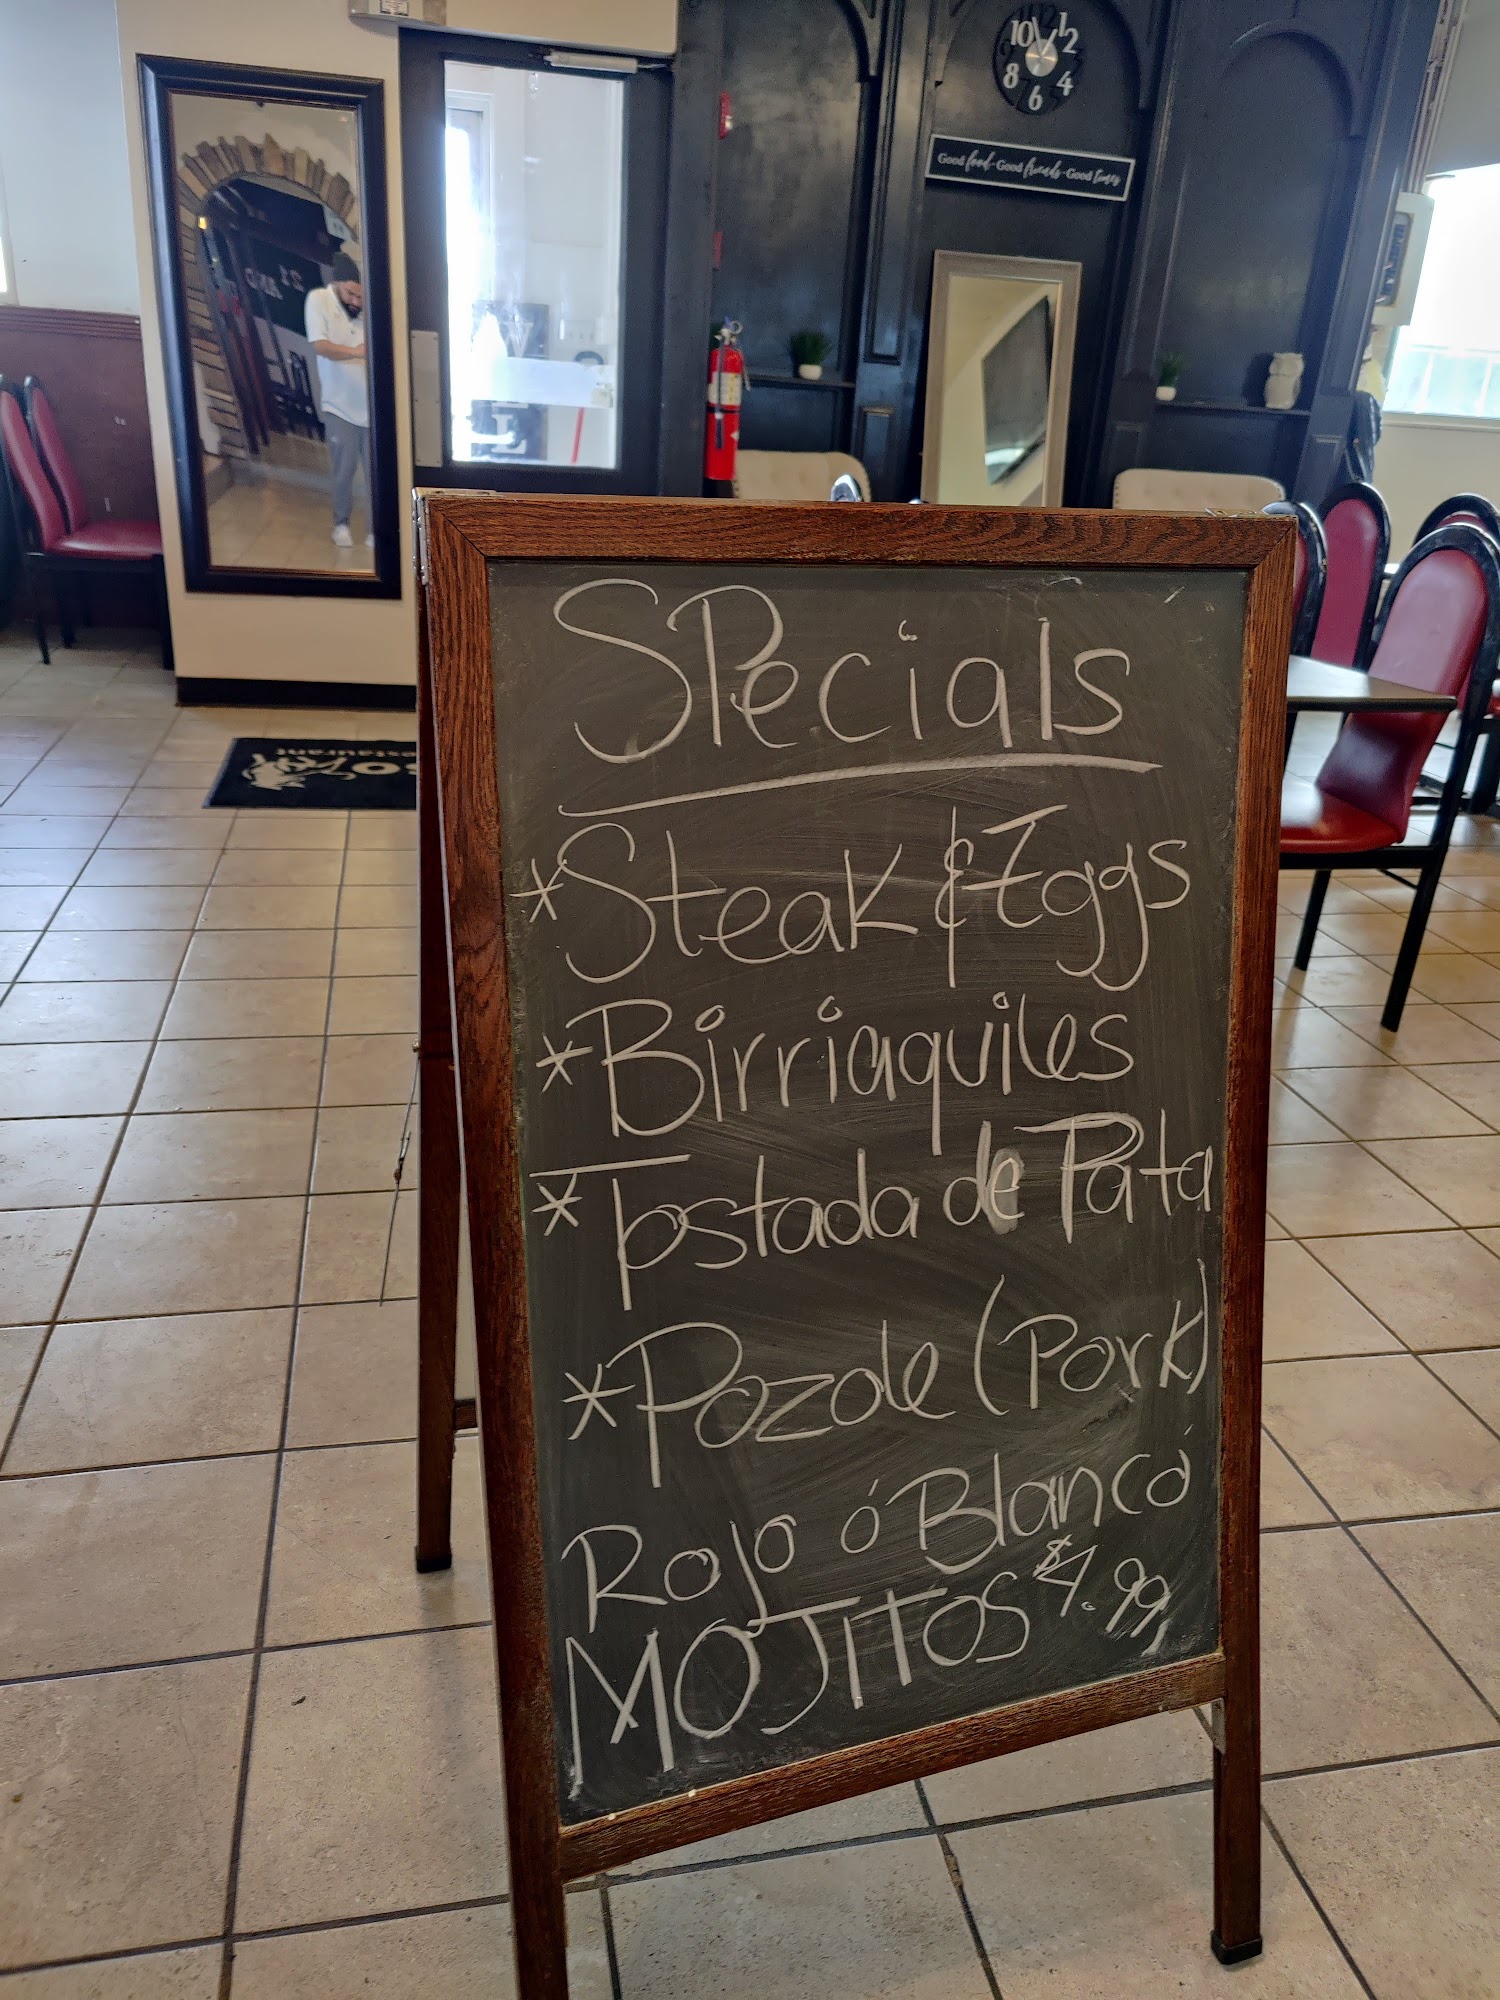 10 12
2
8 4
6
Good food - Good friends - Good times
L
Restaurant
SPecials
*Steak & Eggs
*Birriaquiles
*Tostada de Pata
*Pozole (Pork)
Rojo ó Blancó
MOJiTOS $4.99